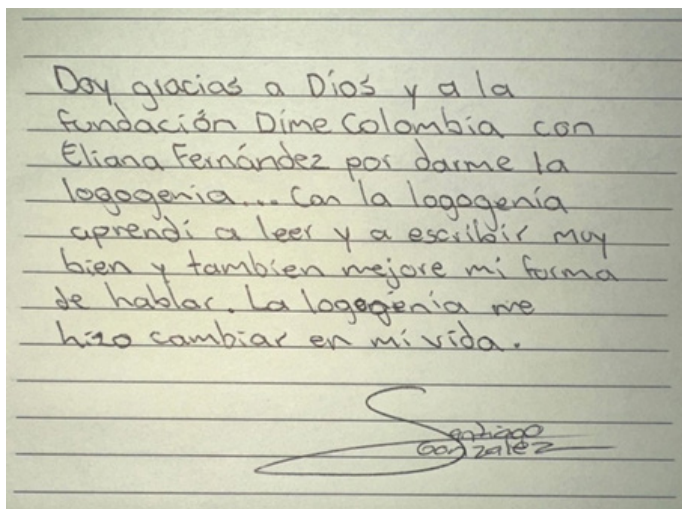 Doy gracias a Dios y a la
fundación Dime Colombia con
Eliana Fernández por darme la
logogenia... Con la logogenía
aprendí a leer y a escribir muy
bien y tambien mejore mi forma
de hablar. La logogenía me
hizo cambiar en mi vida.
Santiago
Gonzalez